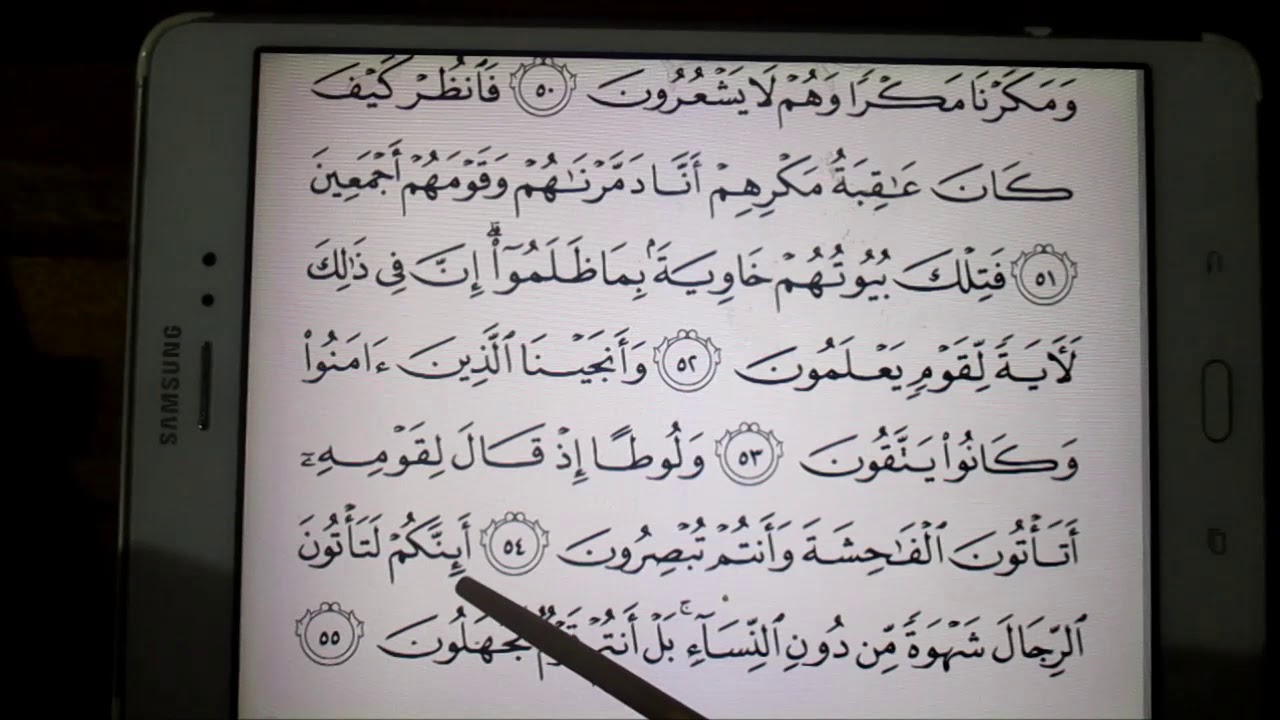 وَمَكَرْنَا مَكْرًا وَهُمْ لَا يَشْعُرُونَ ٥٠ فَٱنظُرْ كَيْفَ
كَانَ عَٰقِبَةُ مَكْرِهِمْ أَنَّا دَمَّرْنَٰهُمْ وَقَوْمَهُمْ أَجْمَعِينَ
٥١ فَتِلْكَ بُيُوتُهُمْ خَاوِيَةًۢ بِمَا ظَلَمُوٓا۟ ۗ إِنَّ فِى ذَٰلِكَ
لَءَايَةً لِّقَوْمٍ يَعْلَمُونَ ٥٢ وَأَنجَيْنَا ٱلَّذِينَ ءَامَنُوا۟
وَكَانُوا۟ يَتَّقُونَ ٥٣ وَلُوطًا إِذْ قَالَ لِقَوْمِهِۦٓ
أَتَأْتُونَ ٱلْفَٰحِشَةَ وَأَنتُمْ تُبْصِرُونَ ٥٤ أَئِنَّكُمْ لَتَأْتُونَ
ٱلرِّجَالَ شَهْوَةً مِّن دُونِ ٱلنِّسَآءِ ۚ بَلْ أَنتُمْ قَوْمٌ تَجْهَلُونَ ٥٥
SAMSUNG